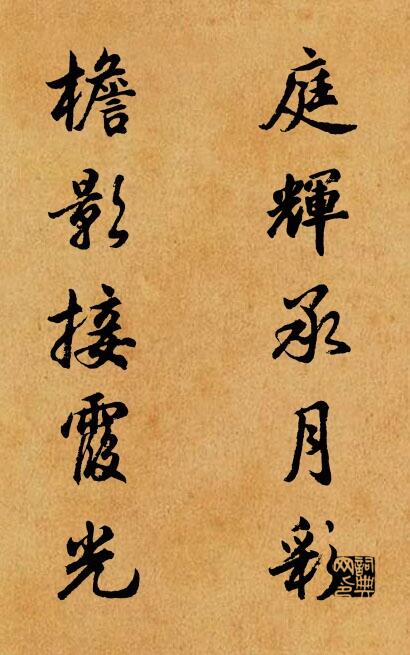 庭輝承月彩
檐影接霞光
詞典网